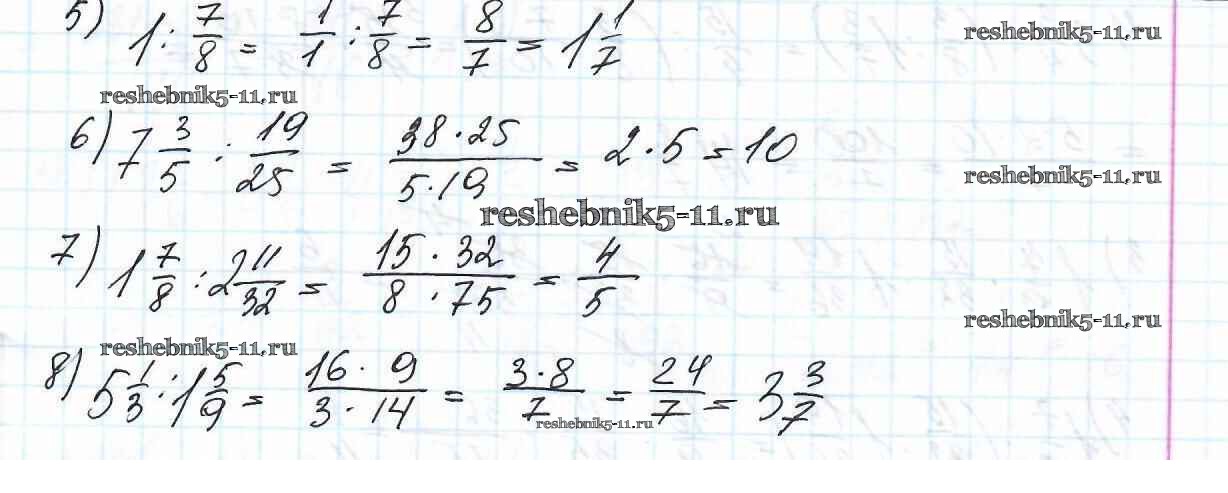 5) 1 : 7/8 = 1/1 : 7/8 = 8/7 = 1 1/7
reshebnik5-11.ru
reshebnik5-11.ru
6) 7 3/5 : 19/25 = 38·25/5·19 = 2·5 = 10
reshebnik5-11.ru
reshebnik5-11.ru
7) 1 7/8 : 2 11/32 = 15·32/8·75 = 4/5
reshebnik5-11.ru
reshebnik5-11.ru
8) 5 1/3 : 1 5/9 = 16·9/3·14 = 3·8/7 = 24/7 = 3 3/7
reshebnik5-11.ru